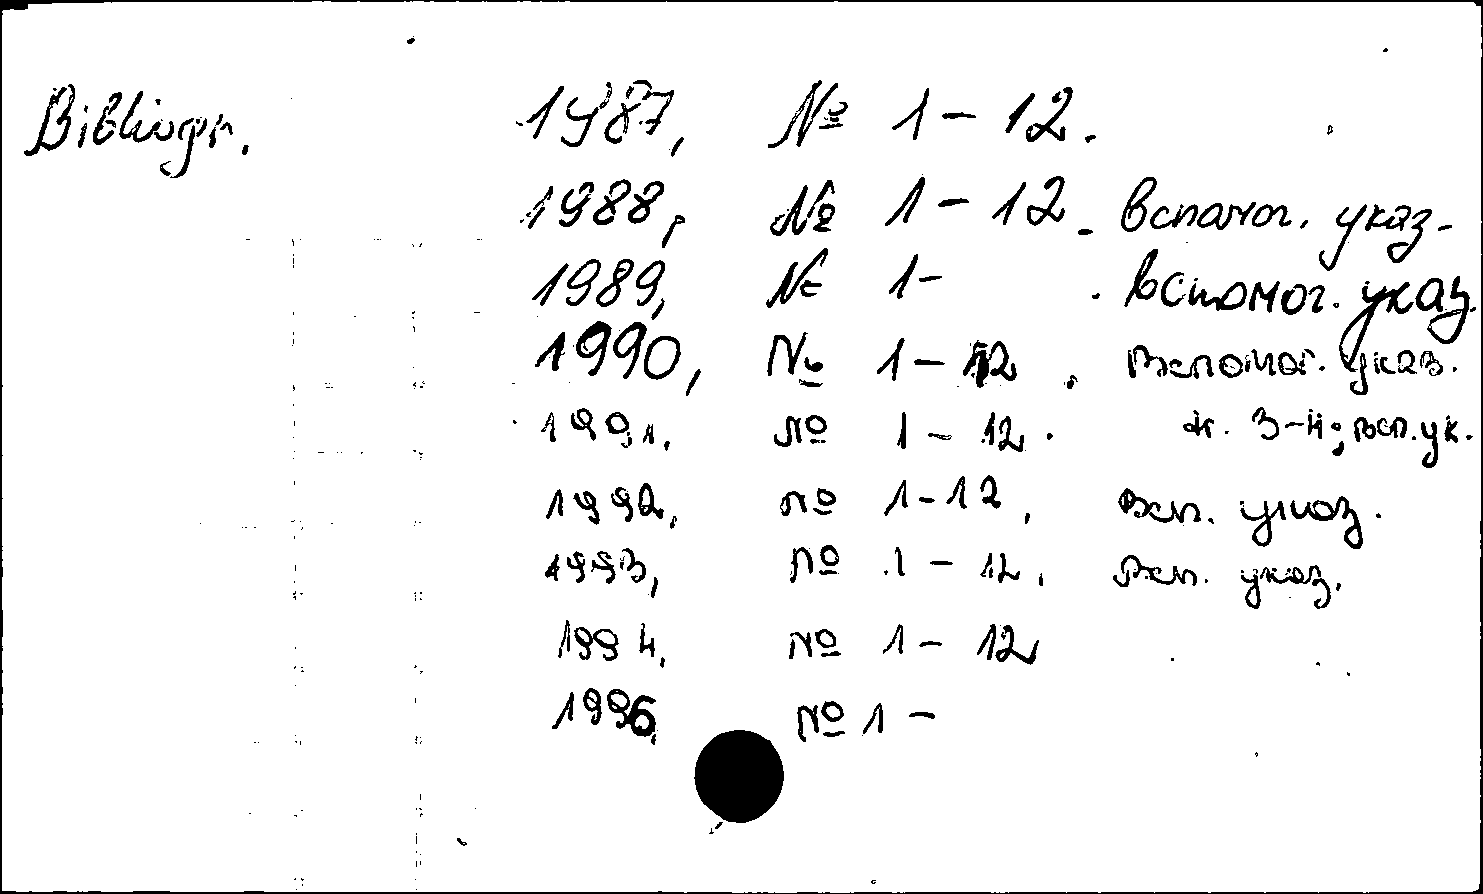 Бібліогр. 1987, № 1 – 12.
1988, № 1 – 12. вспомог. указ.
1989, № 1 – . вспомог. указ.
1990, № 1 – 12. вспомог. указ.
1991, № 1 – 12. 3-й; всп. ук.
1992, № 1 – 12, всп. указ.
1993, № 1 – 12, всп. указ.
1994, № 1 – 12
1996, № 1 –